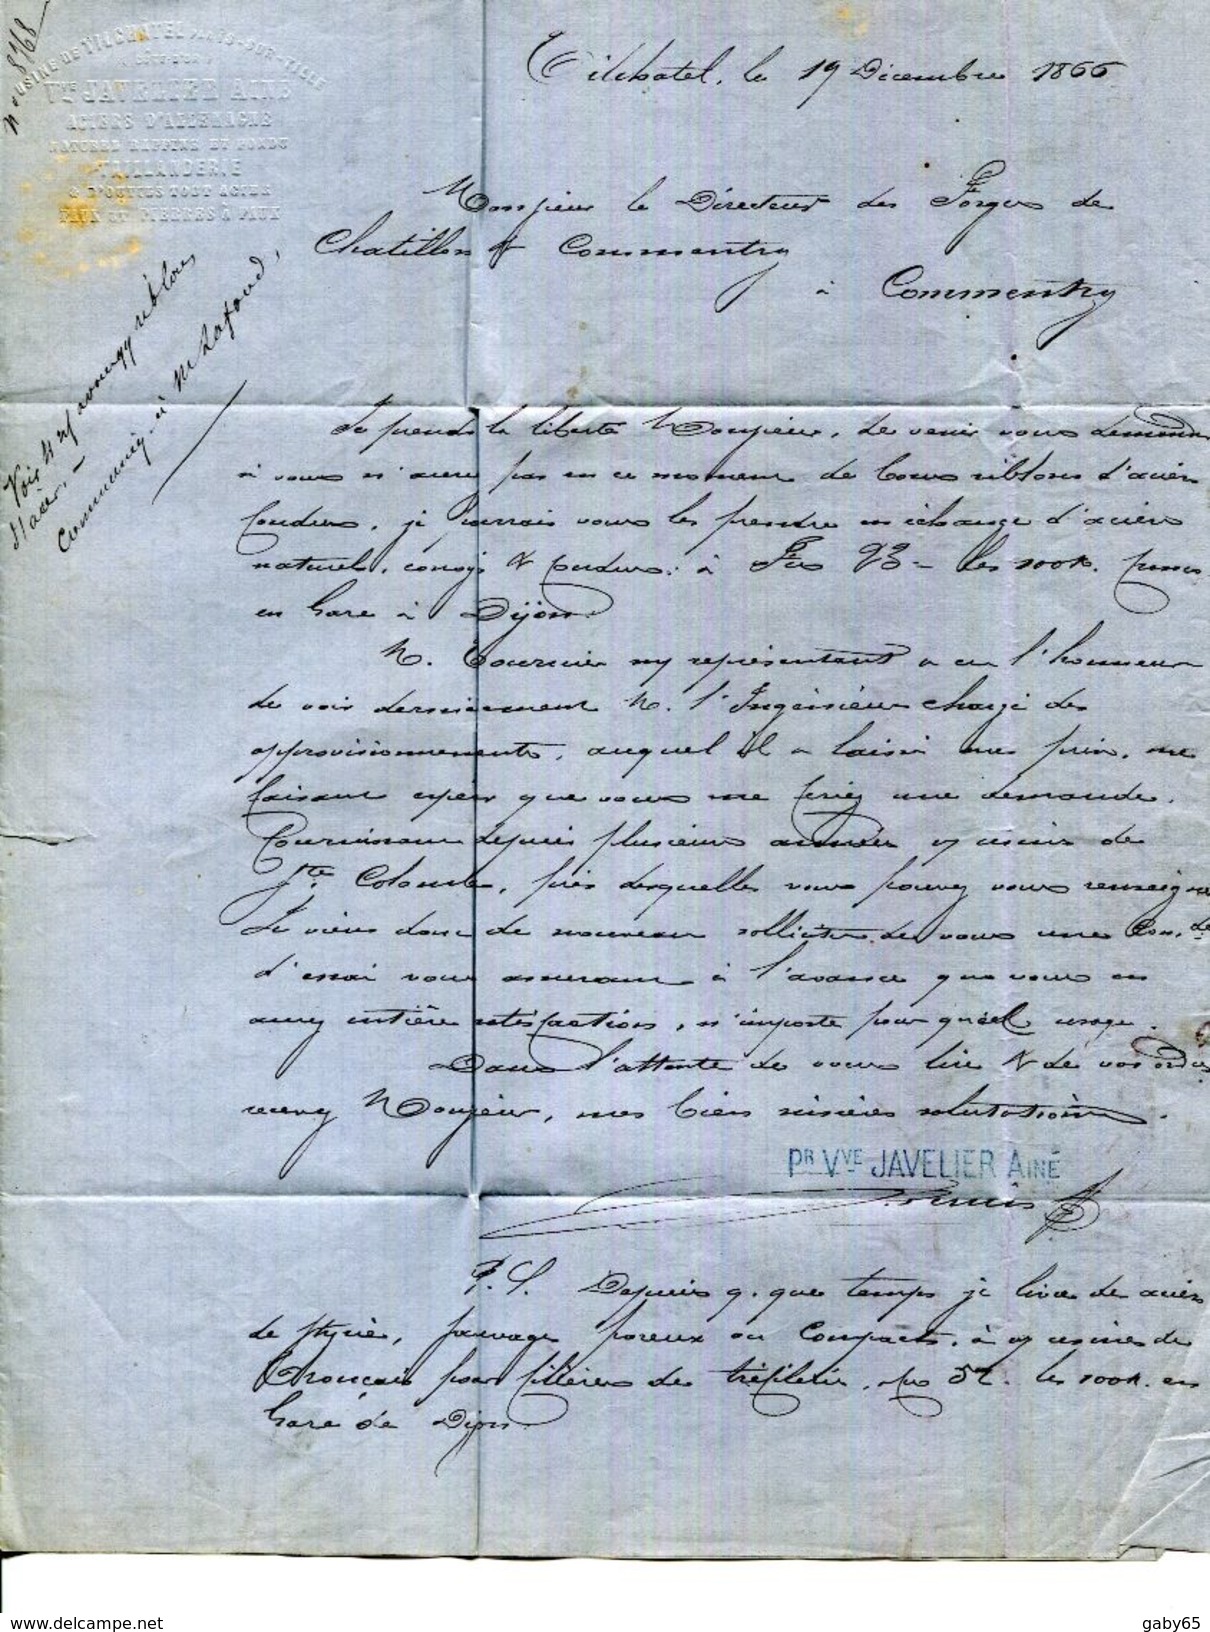 N° 8768
USINE DE TILCHATEL PRÈS IS-SUR-TILLE
(COTE D'OR)
VVE JAVELIER AINÉ
ACIERS D'ALLEMAGNE
NATUREL RAFFINÉ ET FONDU
TAILLANDERIE
& D'OUTILS TOUT ACIER
Tilchatel, le 19 Décembre 1866
Monsieur le Directeur des Forges de
Chatillon & Commentry
à Commentry
Voir
d'acier.
Communiqué à Mr Lafond,
Je prends la liberté Monsieur, de venir vous demander
si vous n'avez pas en ce moment de bons riblons d'acier
fondus, je pourrais vous les prendre en échange d'aciers
naturel, corroyé & fondus: à Frs 23 = les 100 k. franco
en Gare à Dijon.
M. Tournier my représentant a eu l'honneur
de voir dernièrement M. l'Ingénieur chargé des
approvisionnements, auquel il a laissé mes prix, me
faisant espérer que vous me feriez une demande.
Fournissant depuis plusieurs années vos usines de
Ste Colombe, près desquelles vous pouvez vous renseigner
Je viens donc de nouveau solliciter de vous une Comde
d'essai vous assurant à l'avance que vous en
aurez entière satisfaction, n'importe pour quel usage.
Dans l'attente de vous lire & de vos ordres
recevez Monsieur, mes bien sincères salutations.
PR VVE JAVELIER AINÉ
P.S. Depuis q. que temps je livre des aciers
de Styrie, sauvage poreux ou compacts, à vos usines de
Tronçais pour filières de tréfilerie, frs 52. les 100 k. en
Gare de Dijon
gaby65